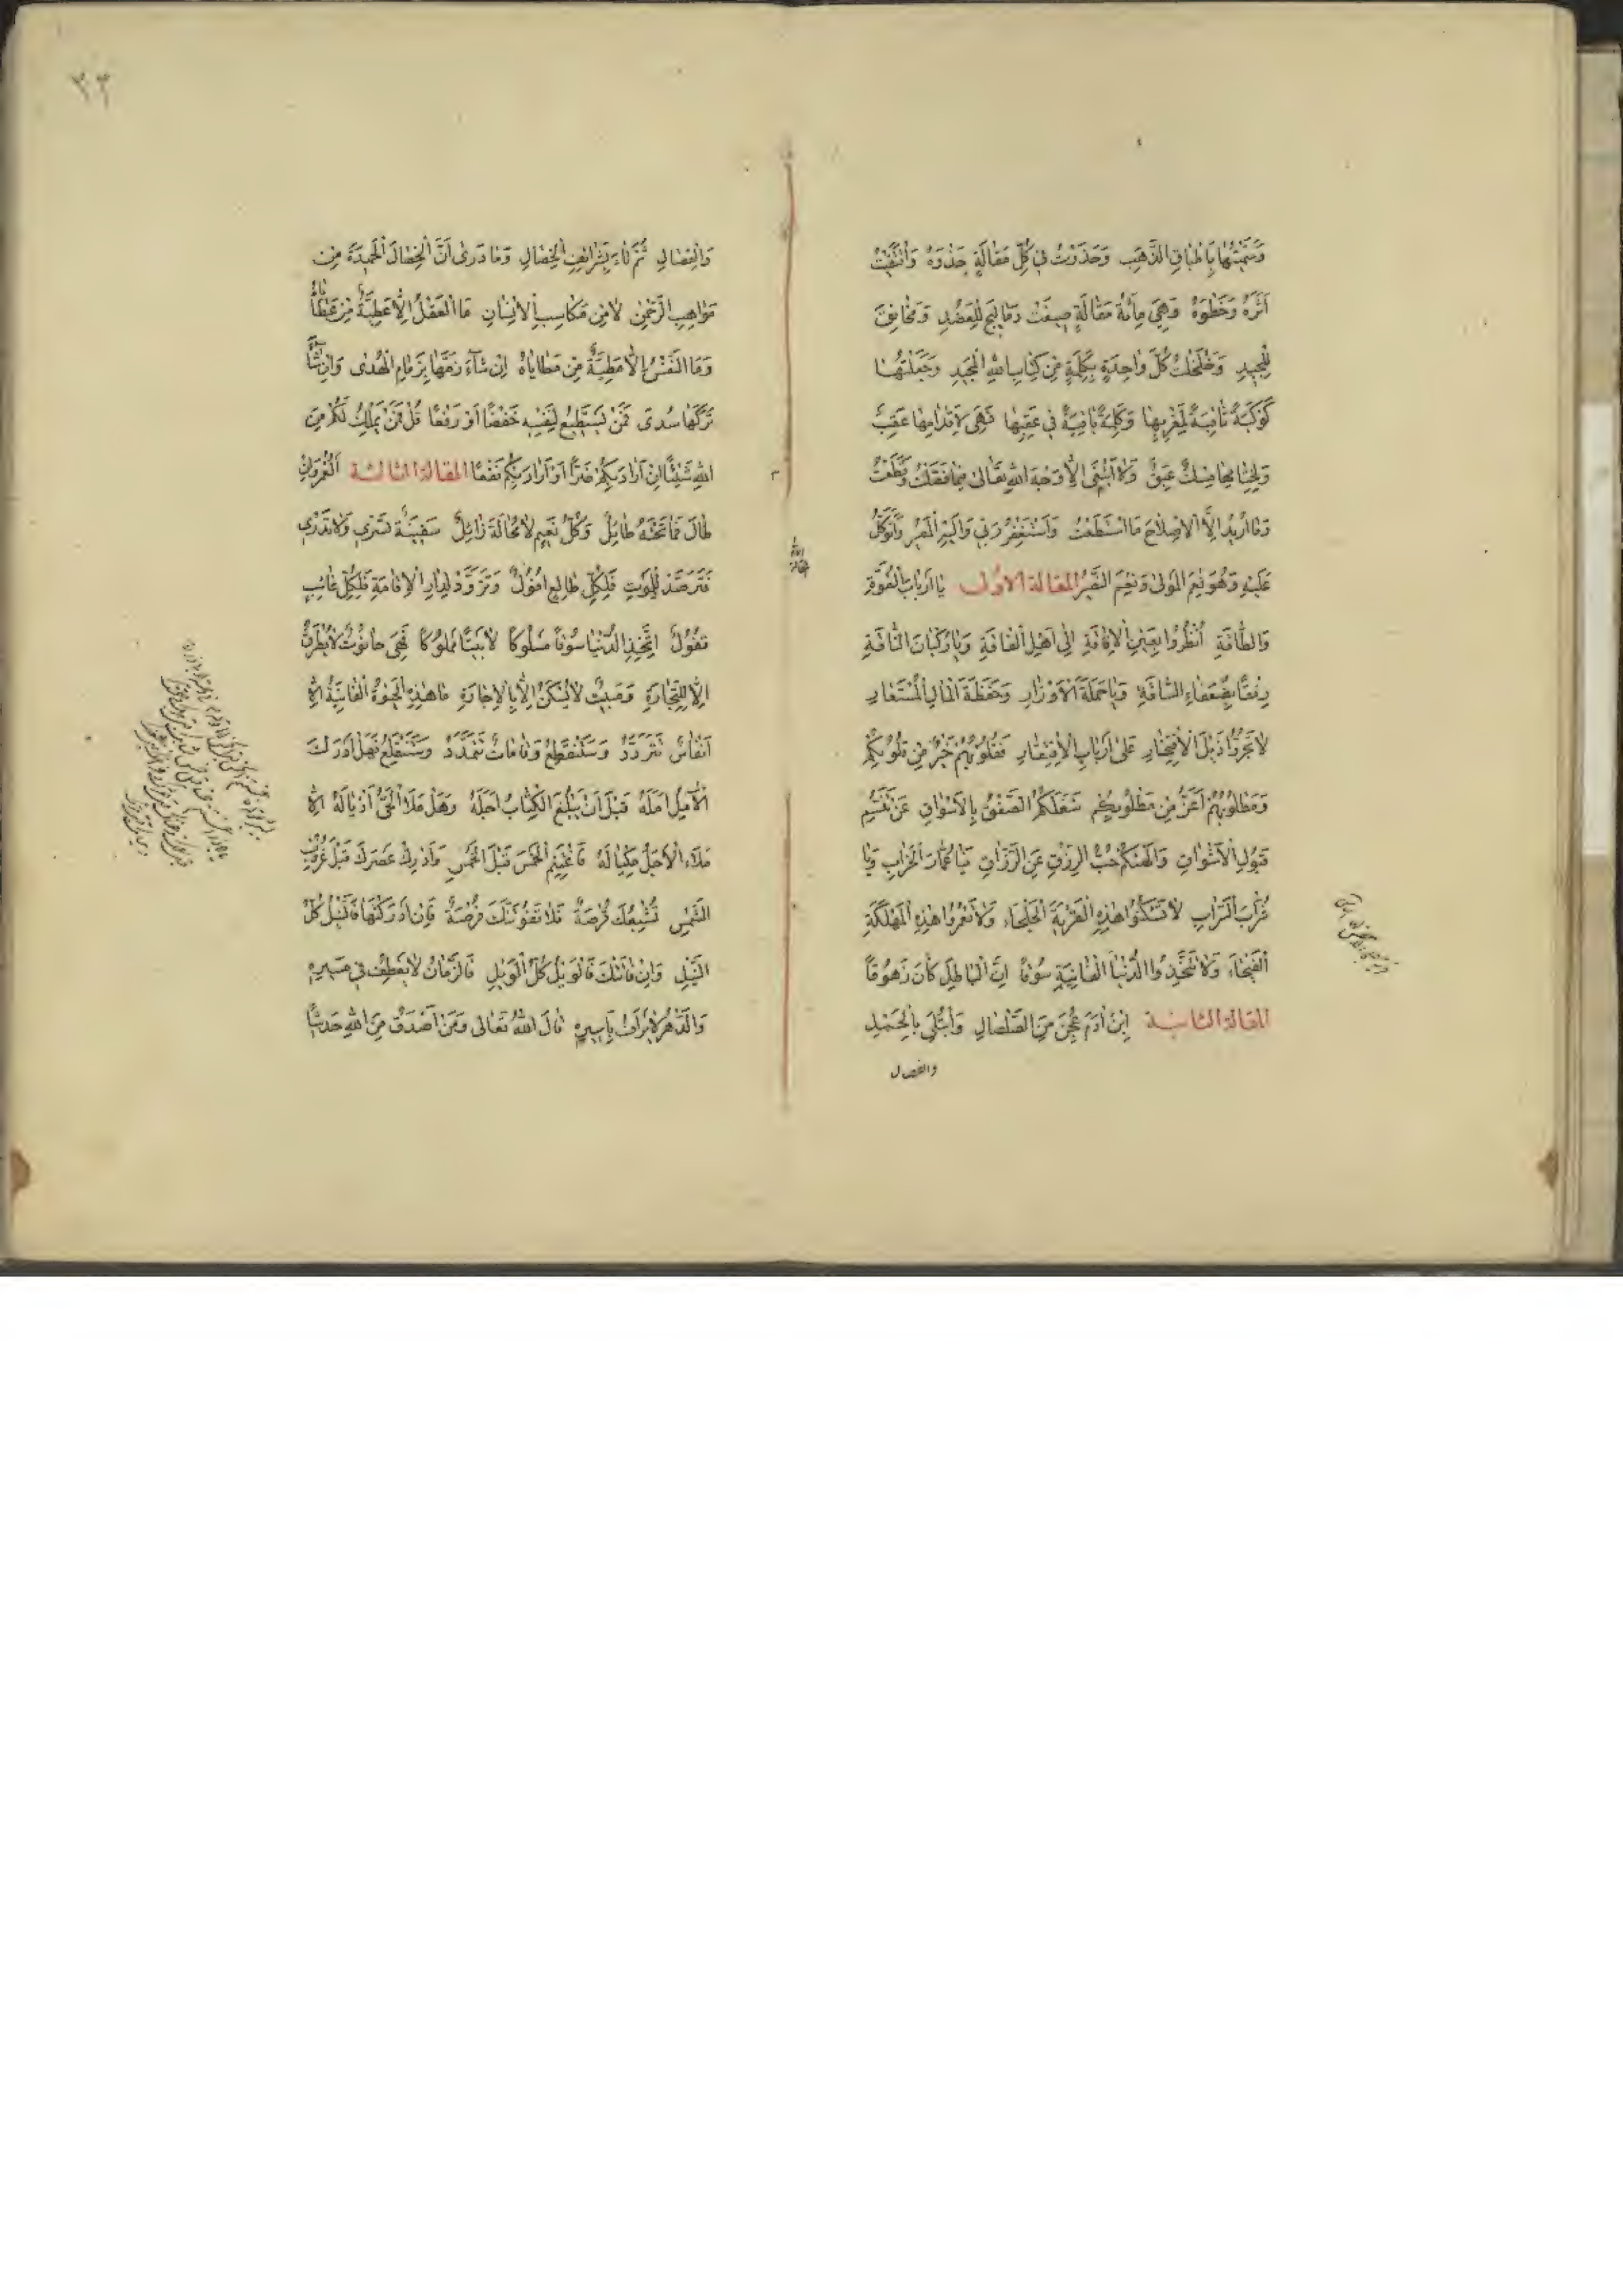 وَسَمَّيْتُهَا بِاَطْبَاقِ الذَّهَبِ وَحَذَوْتُ فِي كُلِّ مَقَالَةٍ حَذْوَهُ وَاقْتَفَيْتُ
اَثَرَهُ وَخَطْوَهُ وَهِيَ مِأَئَةُ مَقَالَةٍ صِيغَتْ دَمَالِيجَ لِلْعَضُدِ وَمَخَانِقَ
لِلْجِيدِ وَخَلْخَلْتُ كُلَّ وَاحِدَةٍ بِكَلِمَةٍ مِنْ كِتَابِ اللّٰهِ الْمَجِيدِ وَجَعَلْتُهَا
كَوْكَبَةً ثَاقِبَةً لِمَغْرِبِهَا وَكَلِمَةً بَاقِيَةً فِي عَقِبِهَا فَهِيَ لِاَقْدَامِهَا عَقِبٌ
عَبِقٌ وَلَا اَبْتَغِي اِلَّا وَجْهَ اللّٰهِ تَعَالٰى فِيمَا
وَمَا اُرِيدُ اِلَّا الْاِصْلَاحَ مَا اسْتَطَعْتُ وَاَسْتَغْفِرُ رَبِّي وَاِلَيْهِ الْمَصِيرُ وَاَتَوَكَّلُ
عَلَيْهِ وَهُوَ نِعْمَ الْمَوْلٰى وَنِعْمَ النَّصِيرُ المقالة الاولى يَا اَرْبَابَ الْقُوَّةِ
وَالطَّاقَةِ اُنْظُرُوا بِعَيْنِ الْاِفَاقَةِ اِلٰى اَهْلِ الْفَاقَةِ وَيَا رُكْبَانَ النَّاقَةِ
رِفْقًا بِضُعَفَاءِ السَّاقَةِ وَيَا حَمَلَةَ الْاَوْزَارِ وَحَفَظَةَ الْمَالِ الْمُسْتَعَارِ
لَا تَجُرُّوا ذَيْلَ الْاِفْتِخَارِ عَلٰى اَرْبَابِ الْاِفْتِقَارِ فَقُلُوبُهُمْ خَيْرٌ مِنْ قُلُوبِكُمْ
وَمَطْلُوبُهُمْ اَعَزُّ مِنْ مَطْلُوبِكُمْ شَغَلَكُمُ الصَّفْقُ بِالْاَسْوَاقِ عَنْ تَنَسُّمِ
قَبُولِ الْاَشْوَاقِ وَاَلْهٰىكُمْ حُبُّ الرِّزْقِ عَنِ الرَّزَّاقِ فَيَا عُمَّارَ الْخَرَابِ وَيَا
التُّرَابِ لَا تَسْكُنُوا هٰذِهِ الْقَرْيَةَ الْجَلْحَاءَ وَلَا تَعْمُرُوا هٰذِهِ الْمَهْلَكَةِ
الْفَيْحَاءَ وَلَا تَتَّخِذُوا الدُّنْيَا الْفَانِيَةِ سُوقًا اِنَّ الْبَاطِلَ كَانَ زَهُوقًا
المقالة الثانية اِبْنُ اٰدَمَ عُجِنَ مِنَ الصَّلْصَالِ وَابْتُلِيَ بِالْحَمْلِ
والفصال
٣٣
وَالْفِصَالِ ثُمَّ تَاهَ بِشَرَائِفِ الْخِصَالِ وَمَا دَرٰى اَنَّ الْخِصَالَ الْحَمِيدَةَ مِنْ
مَوَاهِبِ الرَّحْمٰنِ لَا مِنْ مَكَاسِبِ الْاِنْسَانِ مَا الْعَقْلُ اِلَّا عَطِيَّةٌ مِنْ عَطَايَاهُ
وَمَا النَّفْسُ اِلَّا مَطِيَّةٌ مِنْ مَطَايَاهُ اِنْ شَاءَ زَمَّهَا بِزِمَامِ الْهُدٰى وَاِنْ شَاءَ
تَرَكَهَا سُدًى فَمَنْ يَسْتَطِيعُ لِنَفْسِهِ خَفْضًا اَوْ رَفْعًا قُلْ فَمَنْ يَمْلِكُ لَكُمْ مِنَ
اللّٰهِ شَيْئًا اِنْ اَرَادَ بِكُمْ ضَرًّا اَوْ اَرَادَ بِكُمْ نَفْعًا المقالة الثالثة اَلْعُمْرُ وَاِنْ
طَالَ فَمَا تَحْتَهُ طَائِلٌ وَكُلُّ نَعِيمٍ لَا مَحَالَةَ زَائِلٌ سَفِينَةٌ تَسْرِي وَلَا تَدْرِي
فَتَرَصَّدْ لِلْمَوْتِ فَلِكُلِّ طَالِعٍ اُفُولٌ وَتَزَوَّدْ لِدَارِ الْاِقَامَةِ فَلِكُلِّ غَائِبٍ
قُفُولٌ اِتَّخِذِ الدُّنْيَا سُوقًا مَسْلُوكًا لَا بَيْتًا مَمْلُوكًا فَهِيَ حَانُوتٌ لَا يُطْرَقُ
اِلَّا لِلتِّجَارَةِ وَمَبِيتٌ لَا يُسْكَنُ اِلَّا بِالْاِجَارَةِ مَا هٰذِهِ الْحَيٰوةُ الْفَانِيَةُ اِلَّا
اَنْفَاسٌ تَتَرَدَّدُ وَسَتَنْقَطِعُ وَقَامَاتٌ تَتَمَدَّدُ وَسَتَنْقَلِعُ فَهَلْ اَدْرَكَ
الْاٰمِلُ اَمَلَهُ قَبْلَ اَنْ يَبْلُغَ الْكِتَابُ اَجَلَهُ وَهَلْ مَلَأَ الْحَيُّ اَذْيَالَهُ اِلَّا
مَلَأَ الْاَجَلُ مِكْيَالَهُ فَاغْتَنِمِ الْخَمْسَ قَبْلَ الْخَمْسِ وَاَدْرِكْ عَصْرَكَ قَبْلَ غُرُوبِ
الشَّمْسِ فَلَا تَفُوتَنَّكَ فُرْصَةٌ فَاِنْ اَدْرَكْتَهَا فَالنَّيْلُ كُلُّ
النَّيْلِ وَاِنْ فَاتَتْكَ فَالْوَيْلُ كُلُّ الْوَيْلِ فَالزَّمَانُ لَا يَعْطِفُ فِي مَسِيرِهِ
وَالدَّهْرُ لَا يَرْاَفُ بِاَسِيرِهِ قَالَ اللّٰهُ تَعَالٰى وَمَنْ اَصْدَقُ مِنَ اللّٰهِ حَدِيثًا